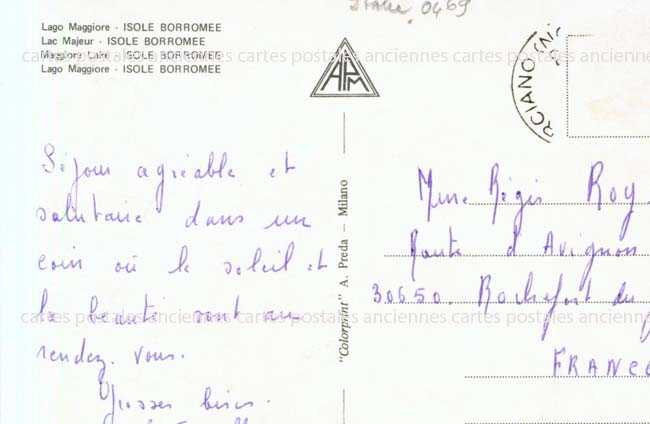 Italie 0469
Lago Maggiore - ISOLE BORROMEE
Lac Majeur - ISOLE BORROMEE
Maggiore Lake - ISOLE BORROMEE
Lago Maggiore - ISOLE BORROMEE
cartes postales anciennes cartes postales anciennes cartes postales anciennes
APM
RCIANO (N
Séjour agréable et
salutaire dans un
coin où le soleil et
la beauté sont au
rendez-vous.
Grosses bises.
"Colorprint" A. Preda - Milano
Mme Régis ROY
Route d'Avignon
30650. Rochefort du
FRANCE
cartes postales anciennes cartes postales anciennes cartes postales anciennes